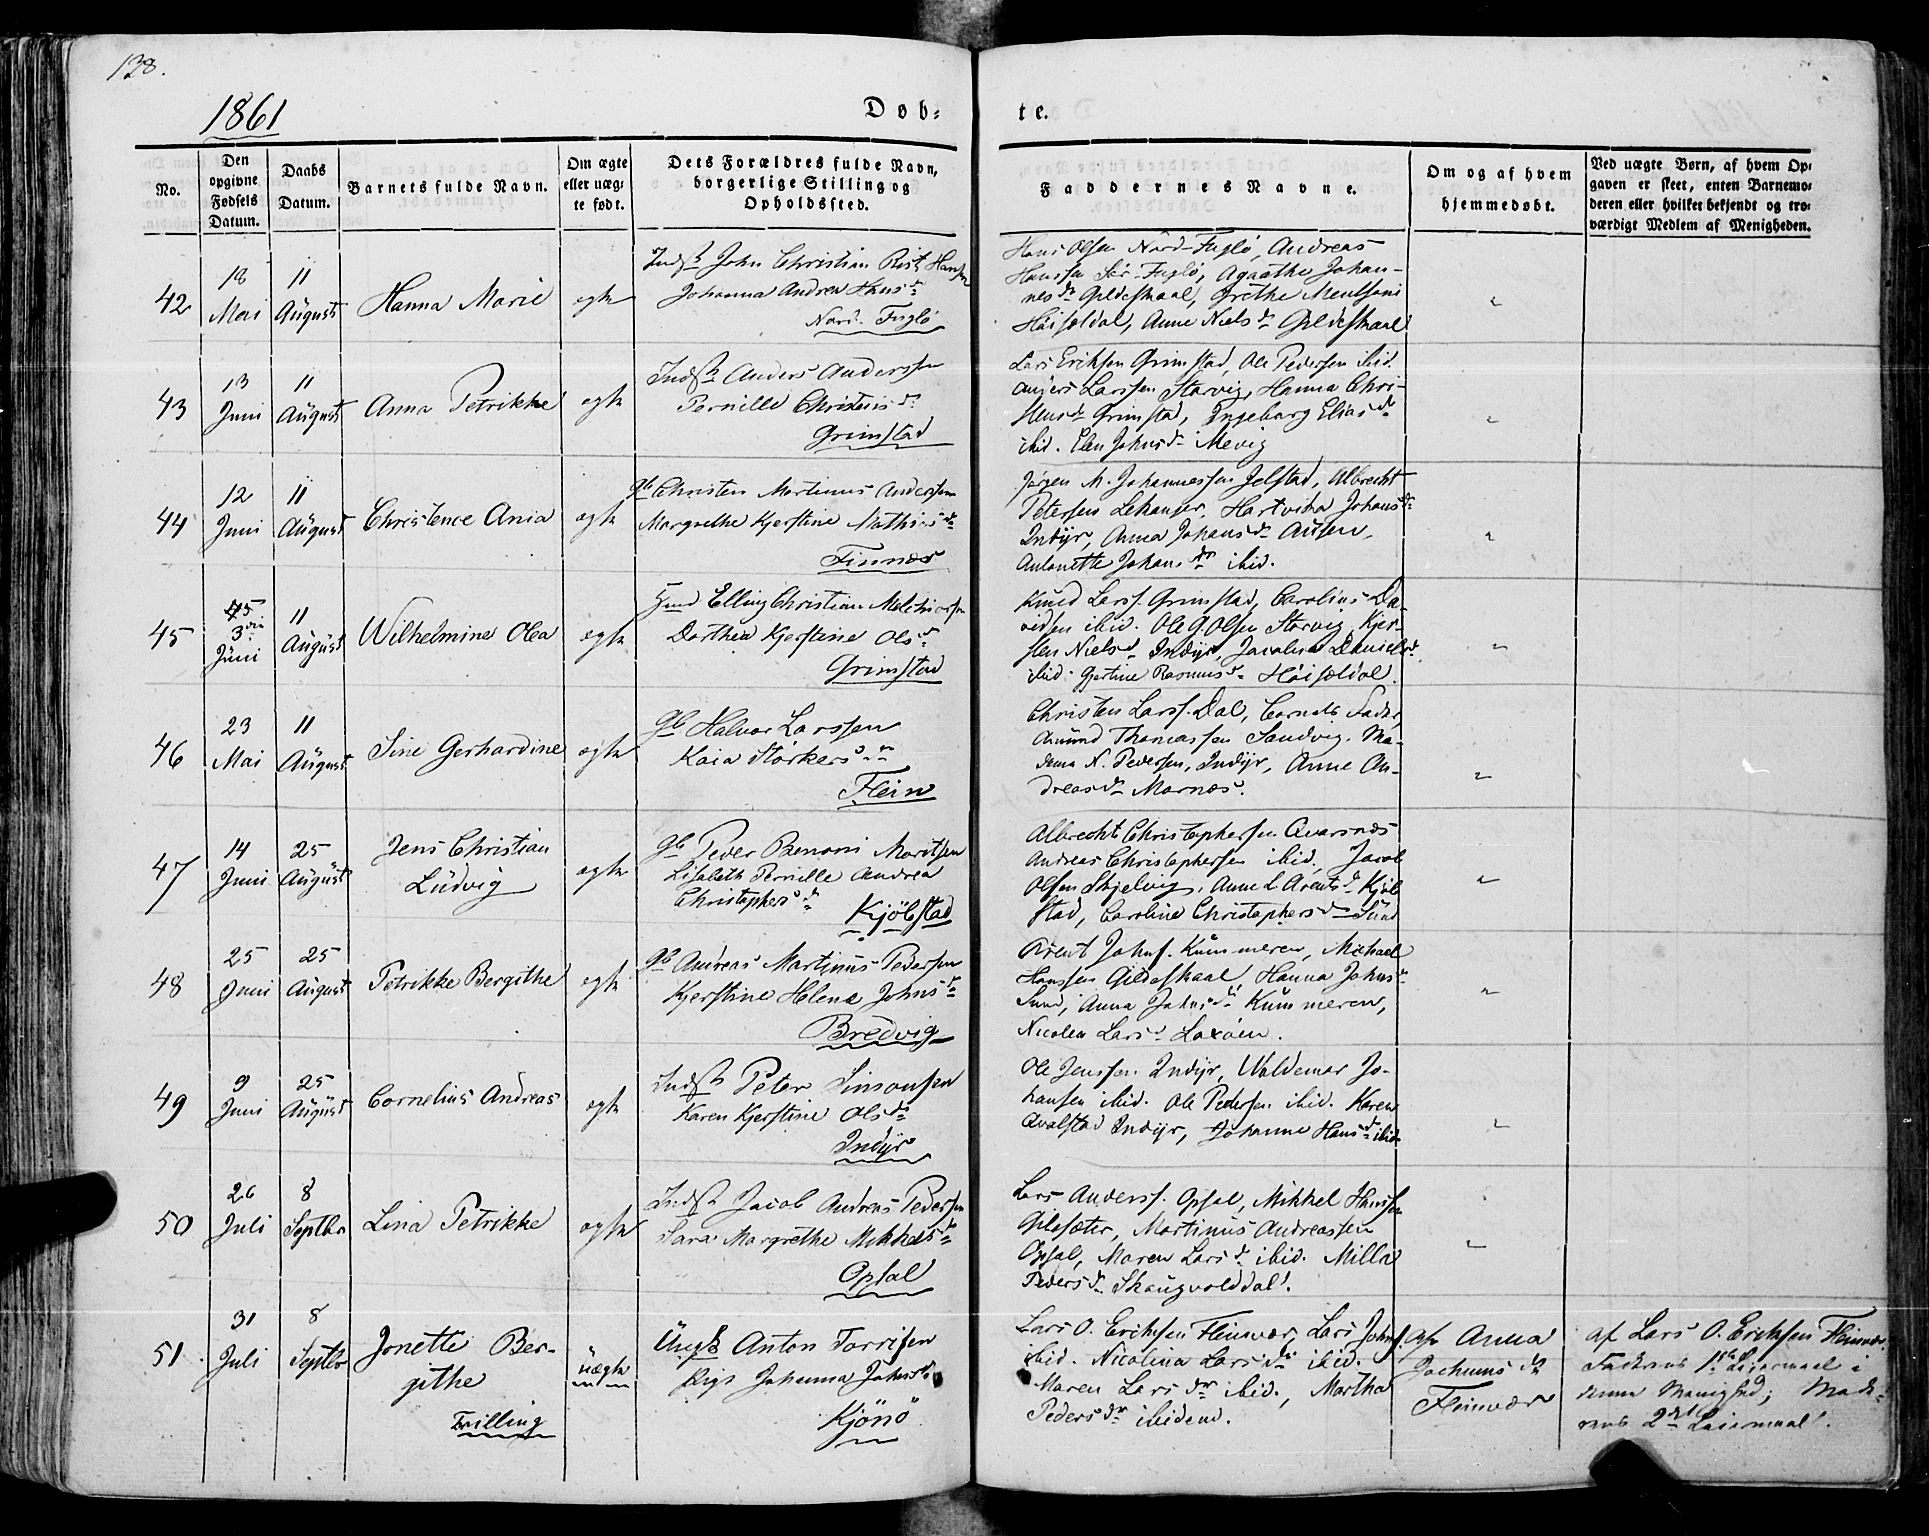 138.
1861
Døb-
te.
No.
Den opgivne Fødsels Datum.
Daabs Datum.
Barnets fulde Navn.
Om ægte eller uægte født.
Dets Forældres fulde Navn, borgerlige Stilling og Opholdssted.
Faddernes Navne.
Om og af hvem hjemmedøbt.
Ved uægte Børn, af hvem Opgaven er skeet, enten Barnemoderen eller hvilket bekjendt og troværdigt Medlem af Menigheden.
42
18 Mai
11 August
Hanna Marie
egte
Indst John Christian Rist Hansen
Johanna Andrea Hansdr
Nord-Fuglø
Hans Olsen Nord-Fuglø, Andreas
Hanssen Sør-Fuglø, Agathe Johan-
nesdr Gildeskaal, Grethe
Høisældal, Anne Nielsdr Gildeskaal
"
43
13 Juni
11 August
Anna Petrikke
egte
Indst Anders Anderssen
Pernille Christensdr
Grimstad
Lars Eriksen Grimstad, Ole Pedersen ibid.
Larssen Storvig, Hanna Chri-
stensdr Grimstad, Ingeborg Eliasdr
ibid. Elen Johnsdr Mevig
"
44
12 Juni
11 August
Christence Ania
egte
gb Christen Martinus Anderssen
Margrethe Kjerstine Mathiasdr
Finnæs
Jørgen M. Johannessen Jelstad, Albrecht
Petersen Lekanger, Hartvika Johansdr
Indyr, Anna Johansdr
Antonette Johansdr ibid.
"
45
3die Juni
11 August
Wilhelmine Olea
egte
Elling Christian Melchiorsen
Dorthea Kjerstine Olsdr
Grimstad
Knud Larss. Grimstad, Carolius Da-
vidsen ibid. Ole G. Olsen Storvig, Kjer-
sten Nielsdr Indyr, Jacobina Danielsdr
ibid. Gjertine Rasmusdr Høisældal.
"
46
23 Mai
11 August
Sine Gerhardine
egte
gb Halvor Larssen
Kaia Størkersdr
Flein
Christen Larss. Dal, Barnets Fader,
Amund Thomassen Sandvig, Ma-
dama N. Pedersen, Indyr, Anne An-
dreasdr Marnæs.
"
47
14 Juni
25 August
Jens Christian
Ludvig
egte
gb Peder Benoni Moritsen
Lisabeth Pernille Andrea
Christophersdr
Kjøbstad
Albrecht Christophersen Qvarsnæs
Andreas Christophersen ibid, Jacob
Olsen Skjelvig, Anne L Arentsdr Kjøb
stad, Caroline Christophersdr Sund
"
48
25 Juni
25 August
Petrikke Bergithe
egte
gb Andreas Martinus Pedersen
Kjerstine Helena Johnsdr
Bredvig
Arent Johns. Kummeren, Michael
Hanssen Gildeskaal, Hanna Johnsdr
Sund, Anna Johnsdr Kummeren,
Nicolea Larsdr
"
49
9 Juni
25 August
Cornelius Andreas
egte
Indst Peter Simonsen
Karen Kjerstine Olsdr
Indyr
Ole Jenssen Indyr, Waldemar Jo-
hansen ibid. Ole Pedersen ibid. Karen
Qvalstad Indyr, Johanne Hansdr ibid
"
50
26 Juli
8 Septbr
Lina Petrikke
egte
Indst Jacob Andreas Pedersen
Sara Margrethe Mikkelsdr
Opsal
Lars Anderss. Opsal, Mikkel Hanssen
Gilesæter, Martinus Andreassen
Opsal, Maren Larsdr ibid. Milla
Pedersdr Skaugvolddal.
"
51.
31 Juli
8 Septbr
Jonette Ber-
githe
Tvilling
uægte
Ungk Anton Torrisen
Pige Johanna Johnsdr
Kjønø
Lars O. Eriksen Fleinvær, Lars Johns.
ibid. Nicolina Larsdr ibid.
Maren Larsdr ibid., Martha
Pedersdr ibidem.
af Anna
Jochumsdr
Fleinvær
af Lars O. Eriksen Fleinvær.
Faderens 1ste Leiermaal i
denne Menighed; Mode-
rens 2det Leiermaal.